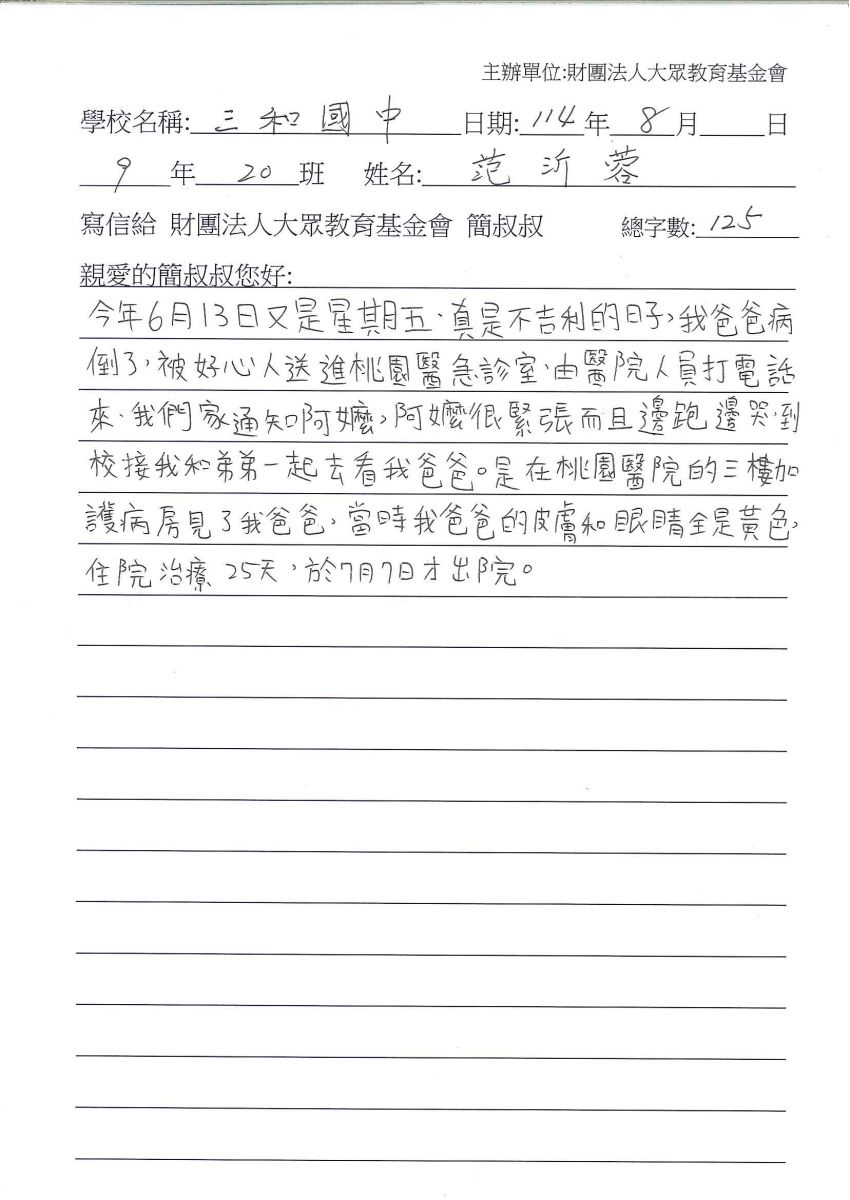 主辦單位:財團法人大眾教育基金會
學校名稱: 三和國中 日期: 114 年 8 月 日
9 年 20 班 姓名: 范沂蓉
寫信給 財團法人大眾教育基金會 簡叔叔 總字數: 125
親愛的簡叔叔您好:
今年6月13日又是星期五、真是不吉利的日子,我爸爸病
倒了,被好心人送進桃園醫急診室、由醫院人員打電話
來、我們家通知阿嬤,阿嬤很緊張而且邊跑邊哭、到
校接我和弟弟一起去看我爸爸。是在桃園醫院的三樓加
護病房見了我爸爸、當時我爸爸的皮膚和眼睛全是黃色,
住院治療25天,於7月7日才出院。